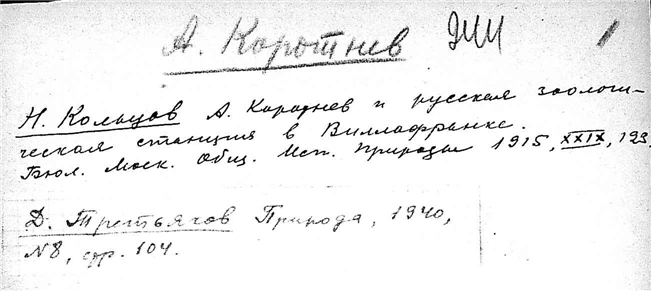 А. Коротнев ЗИН 1
Н. Кольцов А. Коротнев и русская зоологи-
ческая станция в Виллафранке.
Бюл. Моск. Общ. Исп. Природы 1915, XXIX, 123.
Д. Третьяков Природа, 1940,
N8, стр. 104.